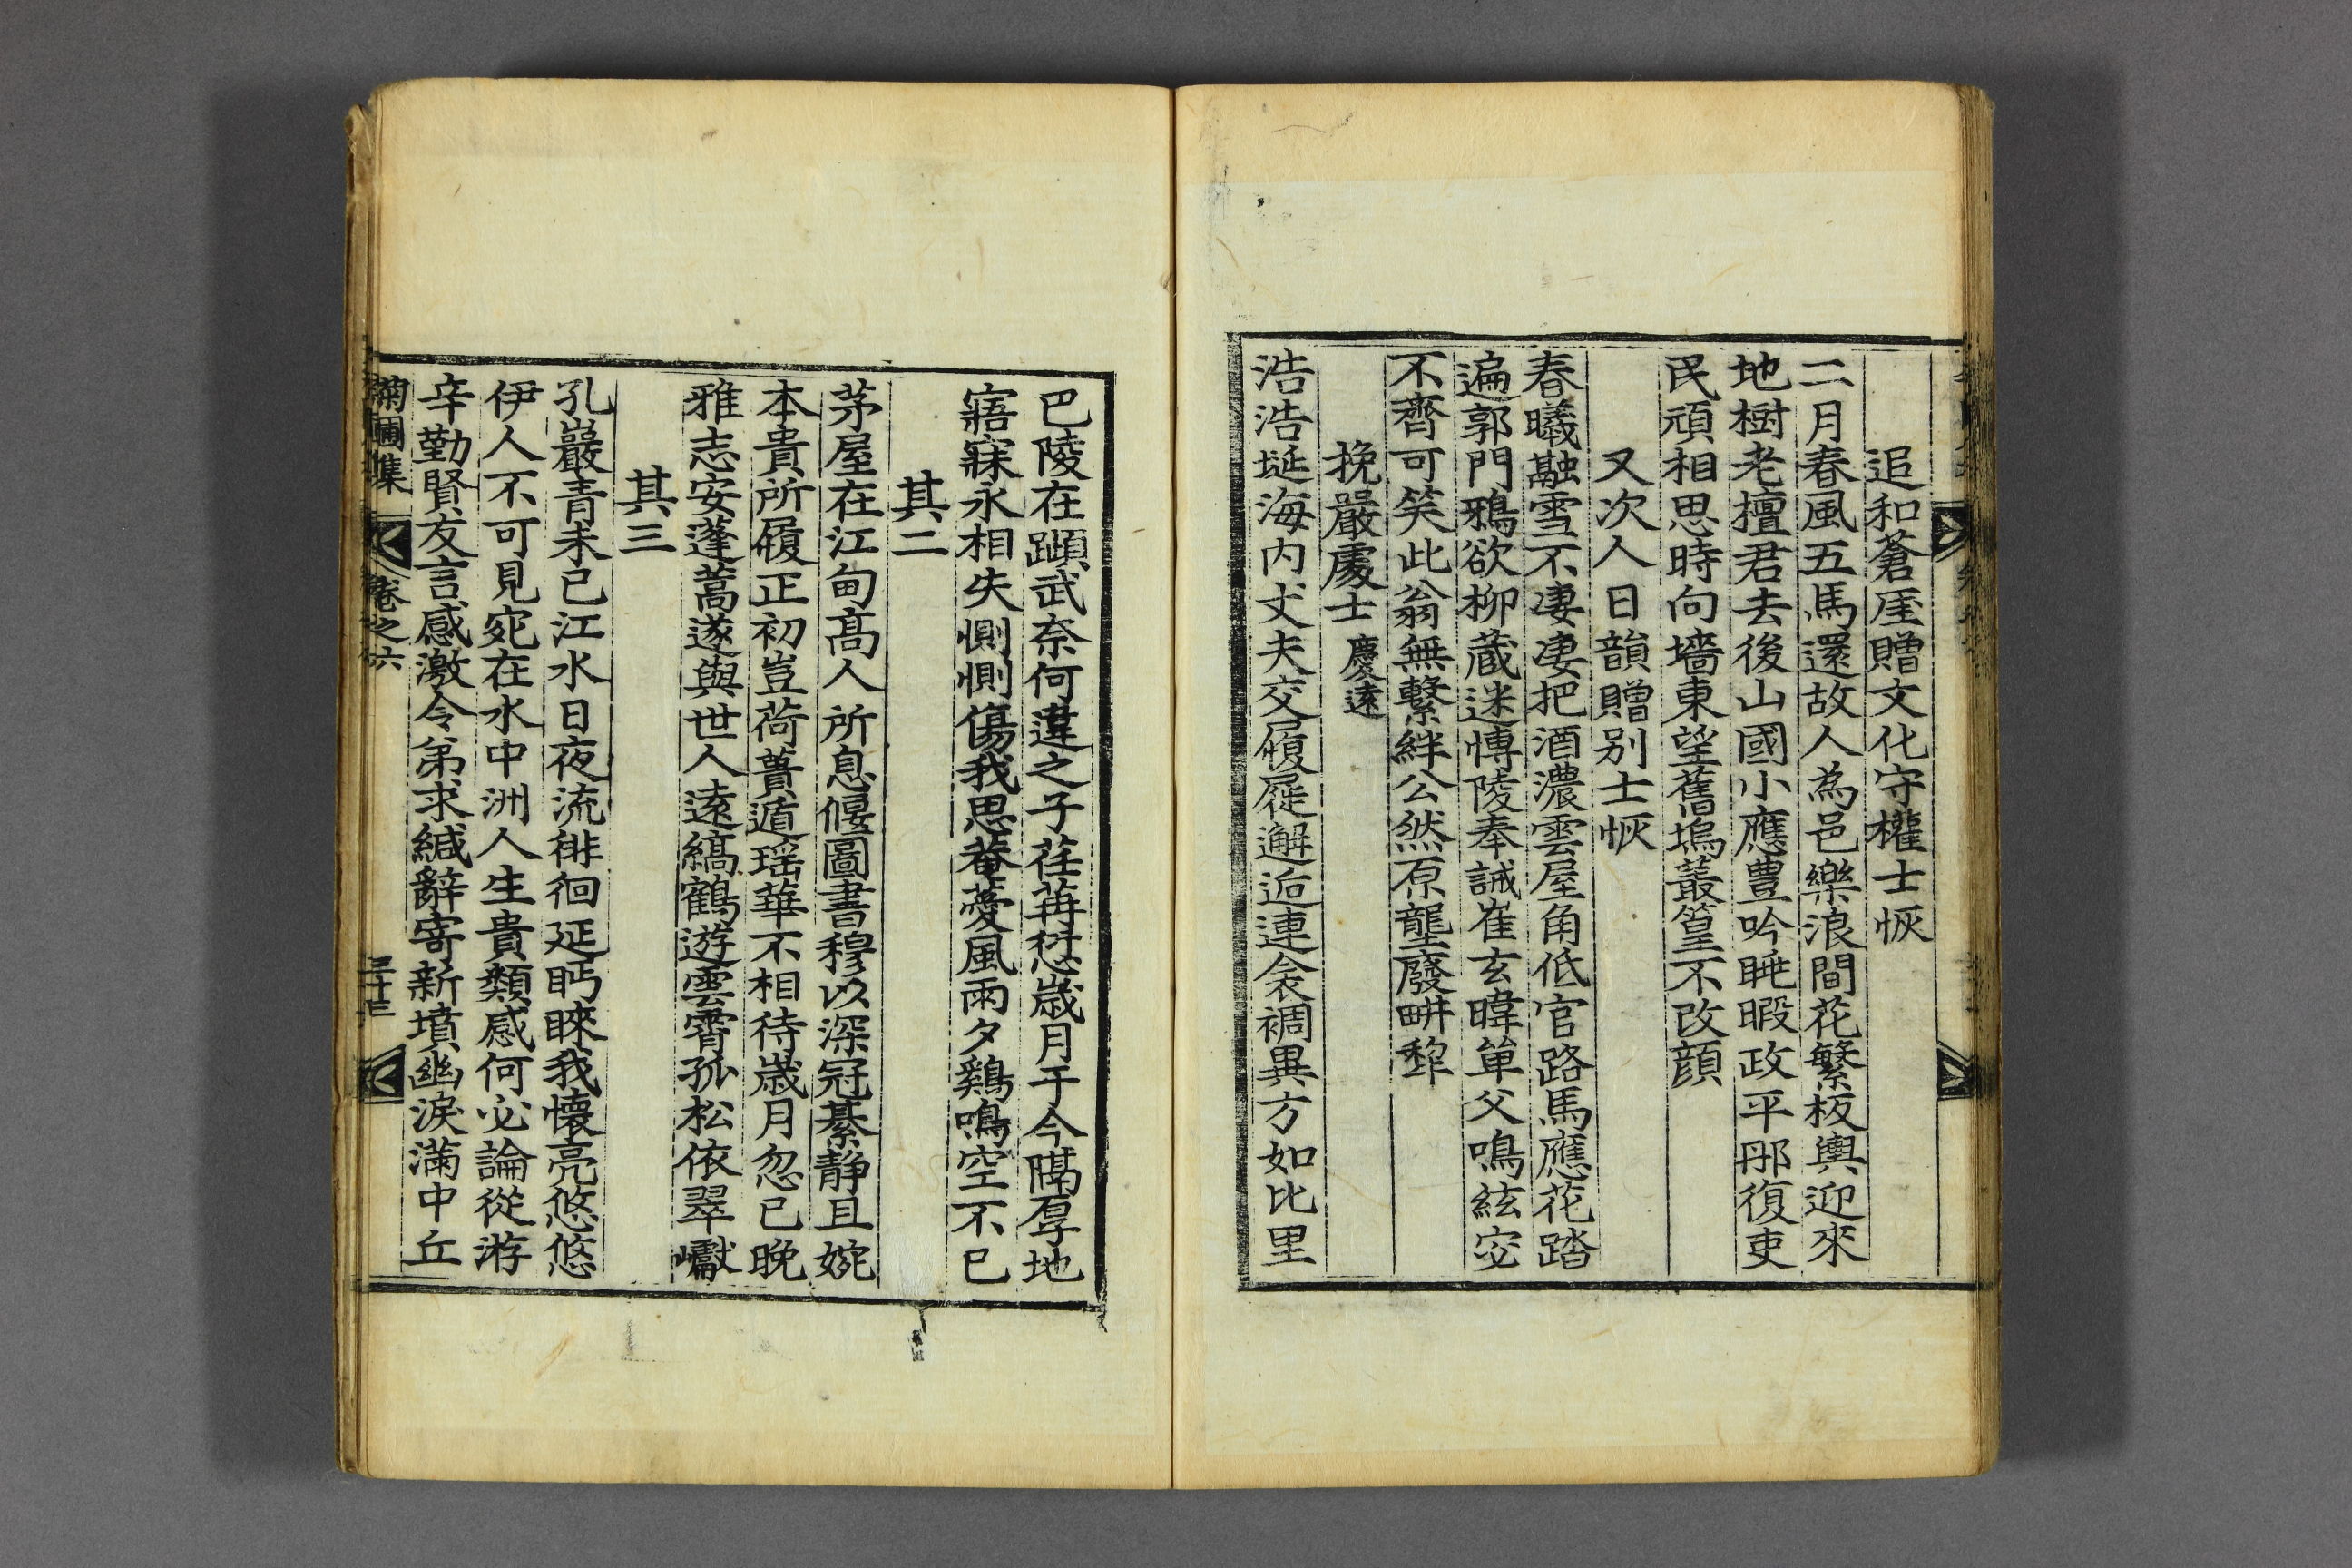 追和蒼厓贈文化守權士恢
二月春風五馬還故人為邑樂浪間花繁板輿迎來
地樹老擅君去後山國小應豊吟眺暇政平彤復吏
民頑相思時向墻東望舊塢叢篁不改顔
又次人日韻贈别士恢
春曦融雪不凄凄把酒濃雲屋角低官路馬應花踏
遍郭門鴉欲柳蔵迷慱陵奉誡崔玄暐單父鳴絃宓
不齊可笑此翁無繫絆公然原壟廢畊犂
挽嚴處士慶遠
浩浩埏海内丈夫交履屣邂逅連衾裯異方如比里
巴陵在蹞武奈何違之子荏苒愆歳月于今隔厚地
寤寐永相失惻惻傷我思菴薆風雨夕鷄鳴空不已
其二
茅屋在江甸髙人所息偃圖書穆以深冠綦静且婉
本貴所履正初豈荷蕢遁瑶華不相待歳月忽已晚
雅志安蓬蒿遂與世人遠縞鶴遊雲霄孤松依翠巘
其三
孔巖青未已江水日夜流徘徊延眄睞我懐亮悠悠
伊人不可見宛在水中洲人生貴類感何必論從游
辛勤賢友言感激令弟求緘辭寄新墳幽淚滿中丘
集 卷之六 三十三